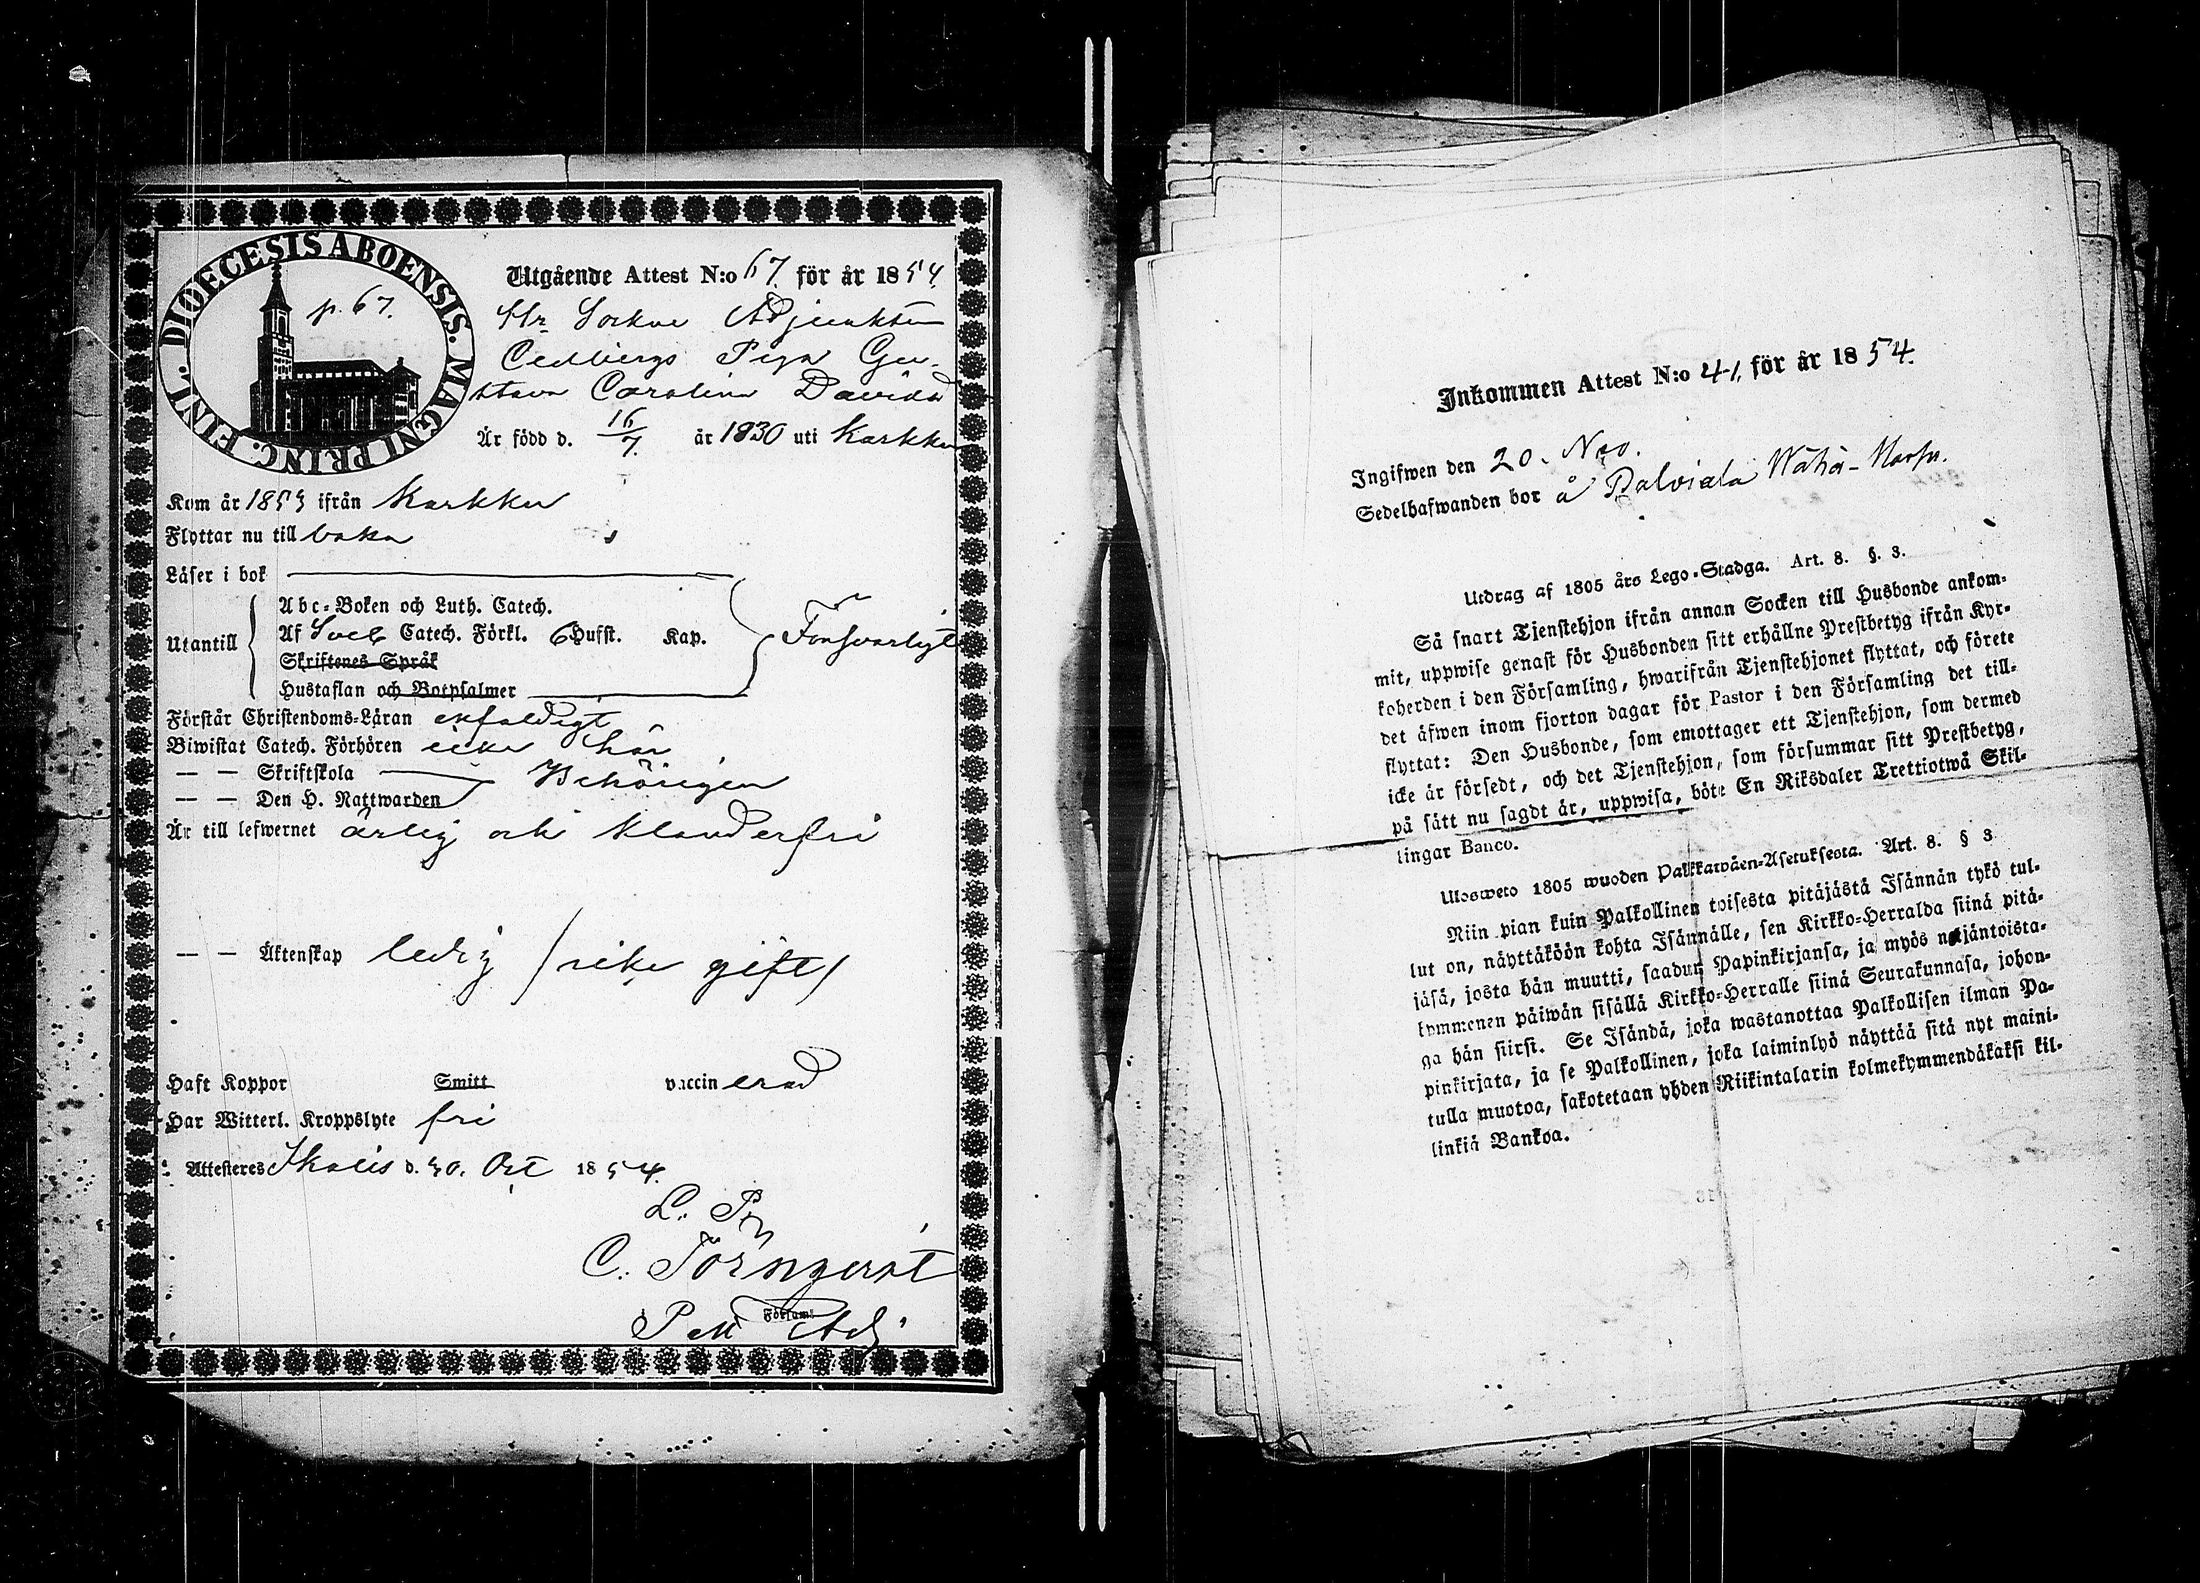 DIOECESIS ABOENSIS. MAGNI PRINC. FINL.
p. 67.
Utgående Attest N:o 67. för år 1854.
Hr Sockne Adjunkten
Cedbergs Piga Gu-
stava Carolina Davids
Är född d. 16/7. år 1830 uti Karkku
Kom år 1853 ifrån Karkku
Flyttar nu till baka
Läser i bok
Utantill
Abc-Boken och Luth. Catech.
Af Sveb Catech. Förkl. 6 Hufst. Kap.
Skriftenes Språk
Hustaflan och Botpsalmer
Försvarligt
Förstår Christendoms-Läran enfaldigt
Biwistat Catech. Förhören icke här
— — Skriftskola
— — Den H. Nattwarden
Behörigen
Är till lefwernet ärlig och klanderfri
— — Äktenskap ledig /icke gift/
Haft Koppor Smitt vaccinerad
Har Witterl. Kroppslyte fri
Attesteres Ikalis d. 30. Oct 1854.
L. P.
C. Törnqvist
Församl
Past Adj
Inkommen Attest N:o 41. för år 1854.
Ingifwen den 20. Nov.
Sedelhafwanden bor å Palviala Wähä-Marju.
Utdrag af 1805 års Lego-Stadga. Art. 8. §. 3.
Så snart Tjenstehjon ifrån annan Socken till Husbonde ankom-
mit, uppwise genast för Husbonden sitt erhållne Prestbetyg ifrån Kyr-
koherden i den Församling, hwarifrån Tjenstehjonet flyttat, och förete
det äfwen inom fjorton dagar för Pastor i den Församling det till-
flyttat: Den Husbonde, som emottager ett Tjenstehjon, som dermed
icke är försedt, och det Tjenstehjon, som försummar sitt Prestbetyg,
på sätt nu sagdt är, uppwisa, böte En Riksdaler Trettiotwå Skil-
lingar Banco.
Ulosweto 1805 wuoden Palkkawäen-Asetuksesta. Art. 8. § 3
Niin pian kuin Palkollinen toisesta pitäjästä Isännän tykö tul-
lut on, näyttäköön kohta Isännälle, sen Kirkko-Herralda siinä pitä-
jäsä, josta hän muutti, saadun Papinkirjansa, ja myös neljäntoista-
kymmenen päiwän sisällä Kirkko-Herralle siinä Seurakunnasa, johon-
ga hän siirsi. Se Isändä, joka wastanottaa Palkollisen ilman Pa-
pinkirjata, ja se Palkollinen, joka laiminlyö näyttää sitä nyt maini-
tulla muotoa, sakotetaan yhden Riikintalarin kolmekymmendäkaksi kil-
linkiä Bankoa.